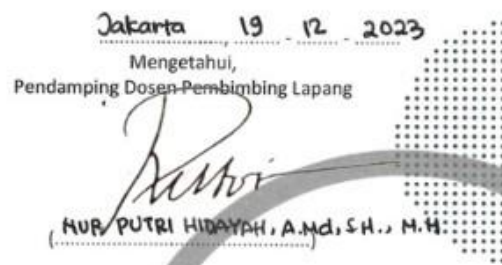 Jakarta, 19 - 12 - 2023
Mengetahui,
Pendamping Dosen Pembimbing Lapang
(NUR PUTRI HIDAYAH, A.Md, S.H., M.H.)